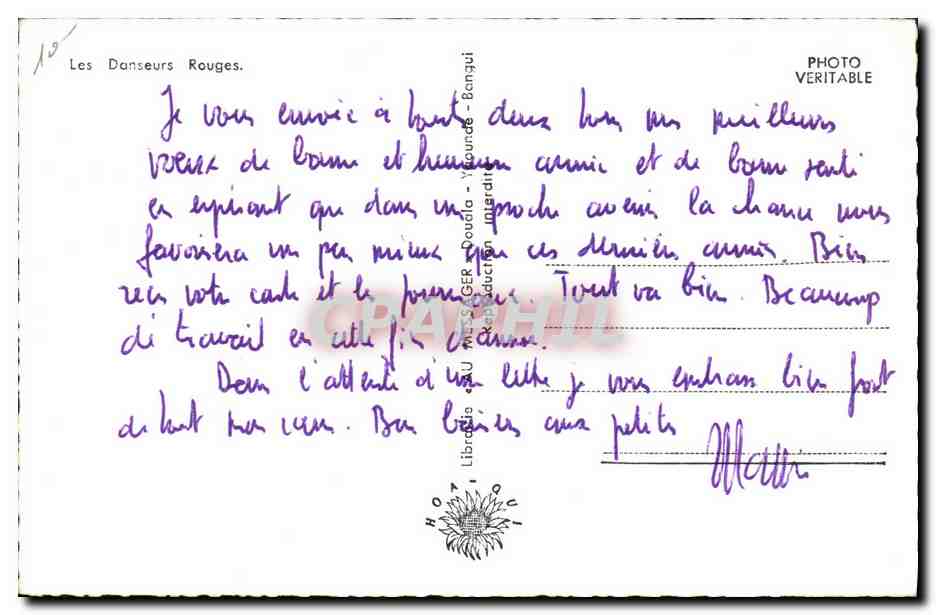 10
Les Danseurs Rouges.
PHOTO
VERITABLE
Je vous envoie à toutes deux tous mes meilleurs
voeux de bonne et heureuse année et de bonne santé
en espérant que dans un proche avenir la chance nous
favorisera un peu mieux que ces dernières années. Bien
reçu votre carte et les. Tout va bien. Beaucoup
de travail en cette fin d'année.
Dans l'attente d'une lettre je vous embrasse bien fort
de tout mon coeur. Bons baisers aux petits
Librairie "AU MESSAGER" Douala - Yaounde - Bangui
Reproduction interdite
HOA-QUI
CPAPHIL